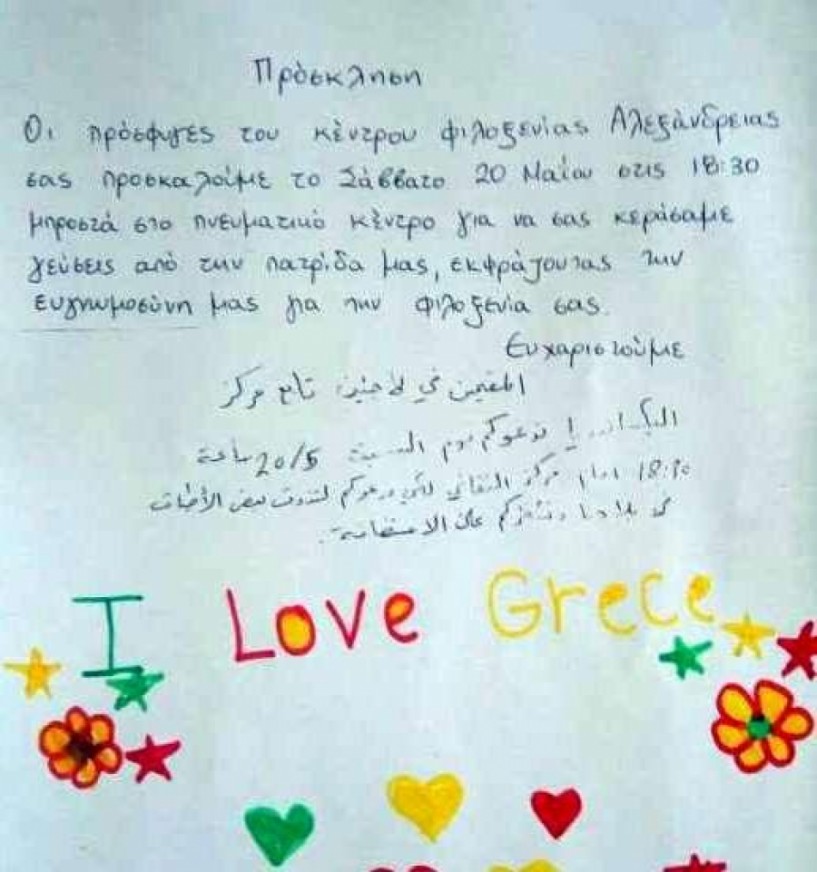 Πρόσκληση
Οι πρόσφυγες του κέντρου φιλοξενίας Αλεξάνδρειας
σας προσκαλούμε το Σάββατο 20 Μαΐου στις 18:30
μπροστά στο πνευματικό κέντρο για να σας κεράσαμε
γεύσεις από την πατρίδα μας, εκφράζοντας την
ευγνωμοσύνη μας για την φιλοξενία σας.
Ευχαριστούμε
المقيمين في لاجئين تابع مركز
ندعوكم يوم السبت 20/5 ساعة
18:30 امام مركز الثقافي لكي ندعوكم لتذوق بعض الأطباق
من بلادنا ونشكركم على الاستضافة.
I Love Grece